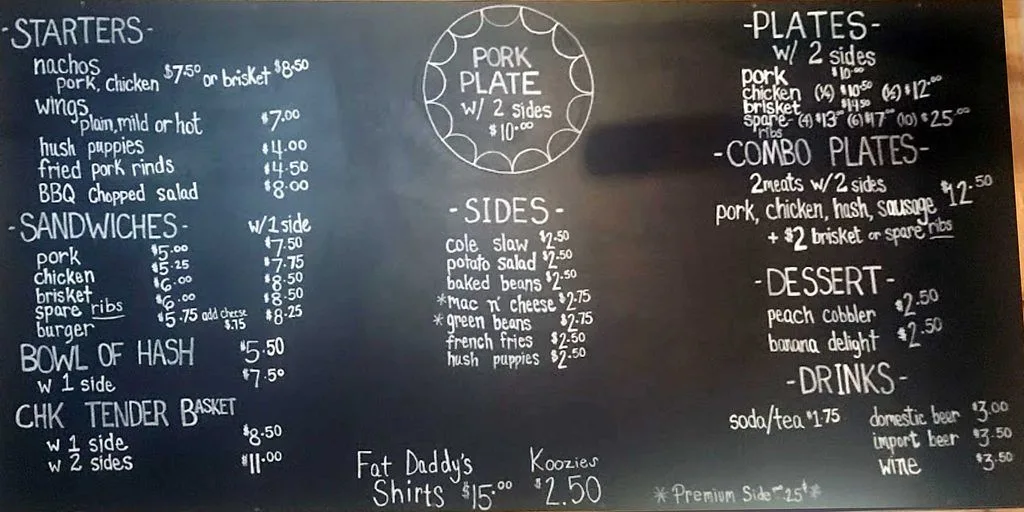 -STARTERS-
nachos
pork, chicken $7.50 or brisket $8.50
wings
plain, mild or hot $7.00
hush puppies $4.00
fried pork rinds $4.50
BBQ Chopped salad $8.00
-SANDWICHES- w/1 side
pork $5.00 $7.50
chicken $5.25 $7.75
brisket $6.00 $8.50
spare ribs $6.00 $8.50
burger $5.75 add cheese $.75 $8.25
BOWL OF HASH $5.50
w 1 side $7.50
CHK TENDER BASKET
w 1 side $8.50
w 2 sides $11.00
PORK
PLATE
w/ 2 sides
$10.00
-SIDES-
cole slaw $2.50
potato salad $2.50
baked beans $2.50
*mac n' cheese $2.75
*green beans $2.75
french fries $2.50
hush puppies $2.50
Fat Daddy's
Shirts $15.00
Koozies
$2.50
-PLATES-
w/ 2 sides
pork $10.00
chicken (1/4) $10.50 (1/2) $12.00
brisket
spare- (4) $13 (6) $17 (10) $25.00
ribs
-COMBO PLATES-
2 meats w/2 sides
pork, chicken, hash, sausage $12.50
+ $2 brisket or spare ribs
-DESSERT-
peach cobbler $2.50
banana delight $2.50
-DRINKS-
soda/tea $1.75
domestic beer $3.00
import beer $3.50
wine $3.50
*Premium Side 25¢*